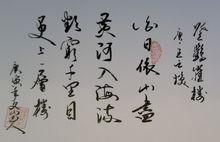 登鸛雀樓
唐王之渙
白日依山盡
黄河入海流
欲窮千里目
更上一層樓
庚寅年